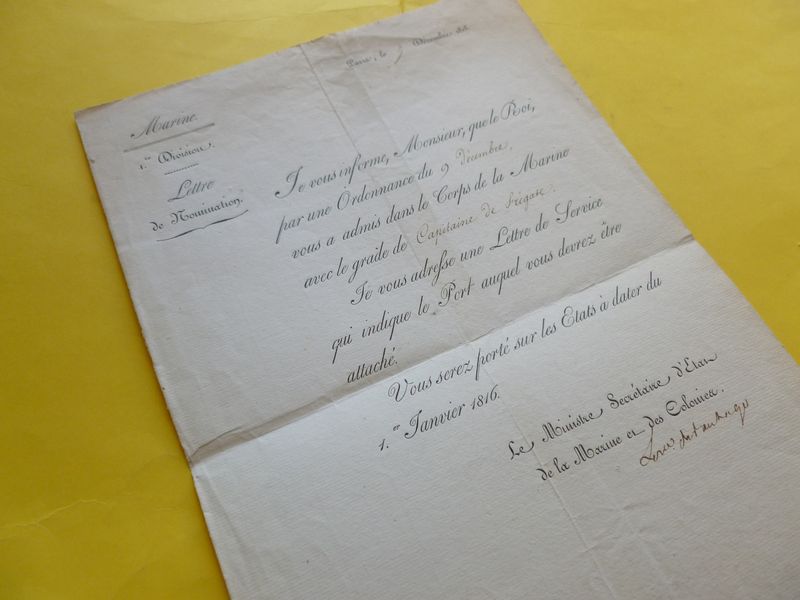 Paris, le 9 Décembre 1815.
Marine.
1.re Division.
Lettre
de Nomination.
Je vous informe, Monsieur, que le Roi,
par une Ordonnance du 9 décembre.
vous a admis dans le Corps de la Marine
avec le grade de Capitaine de frégate.
Je vous adresse une Lettre de Service
qui indique le Port auquel vous devrez être
attaché.
Vous serez porté sur les Etats à dater du
1.er Janvier 1816.
Le Ministre Secrétaire d'Etat
de la Marine et des Colonies.